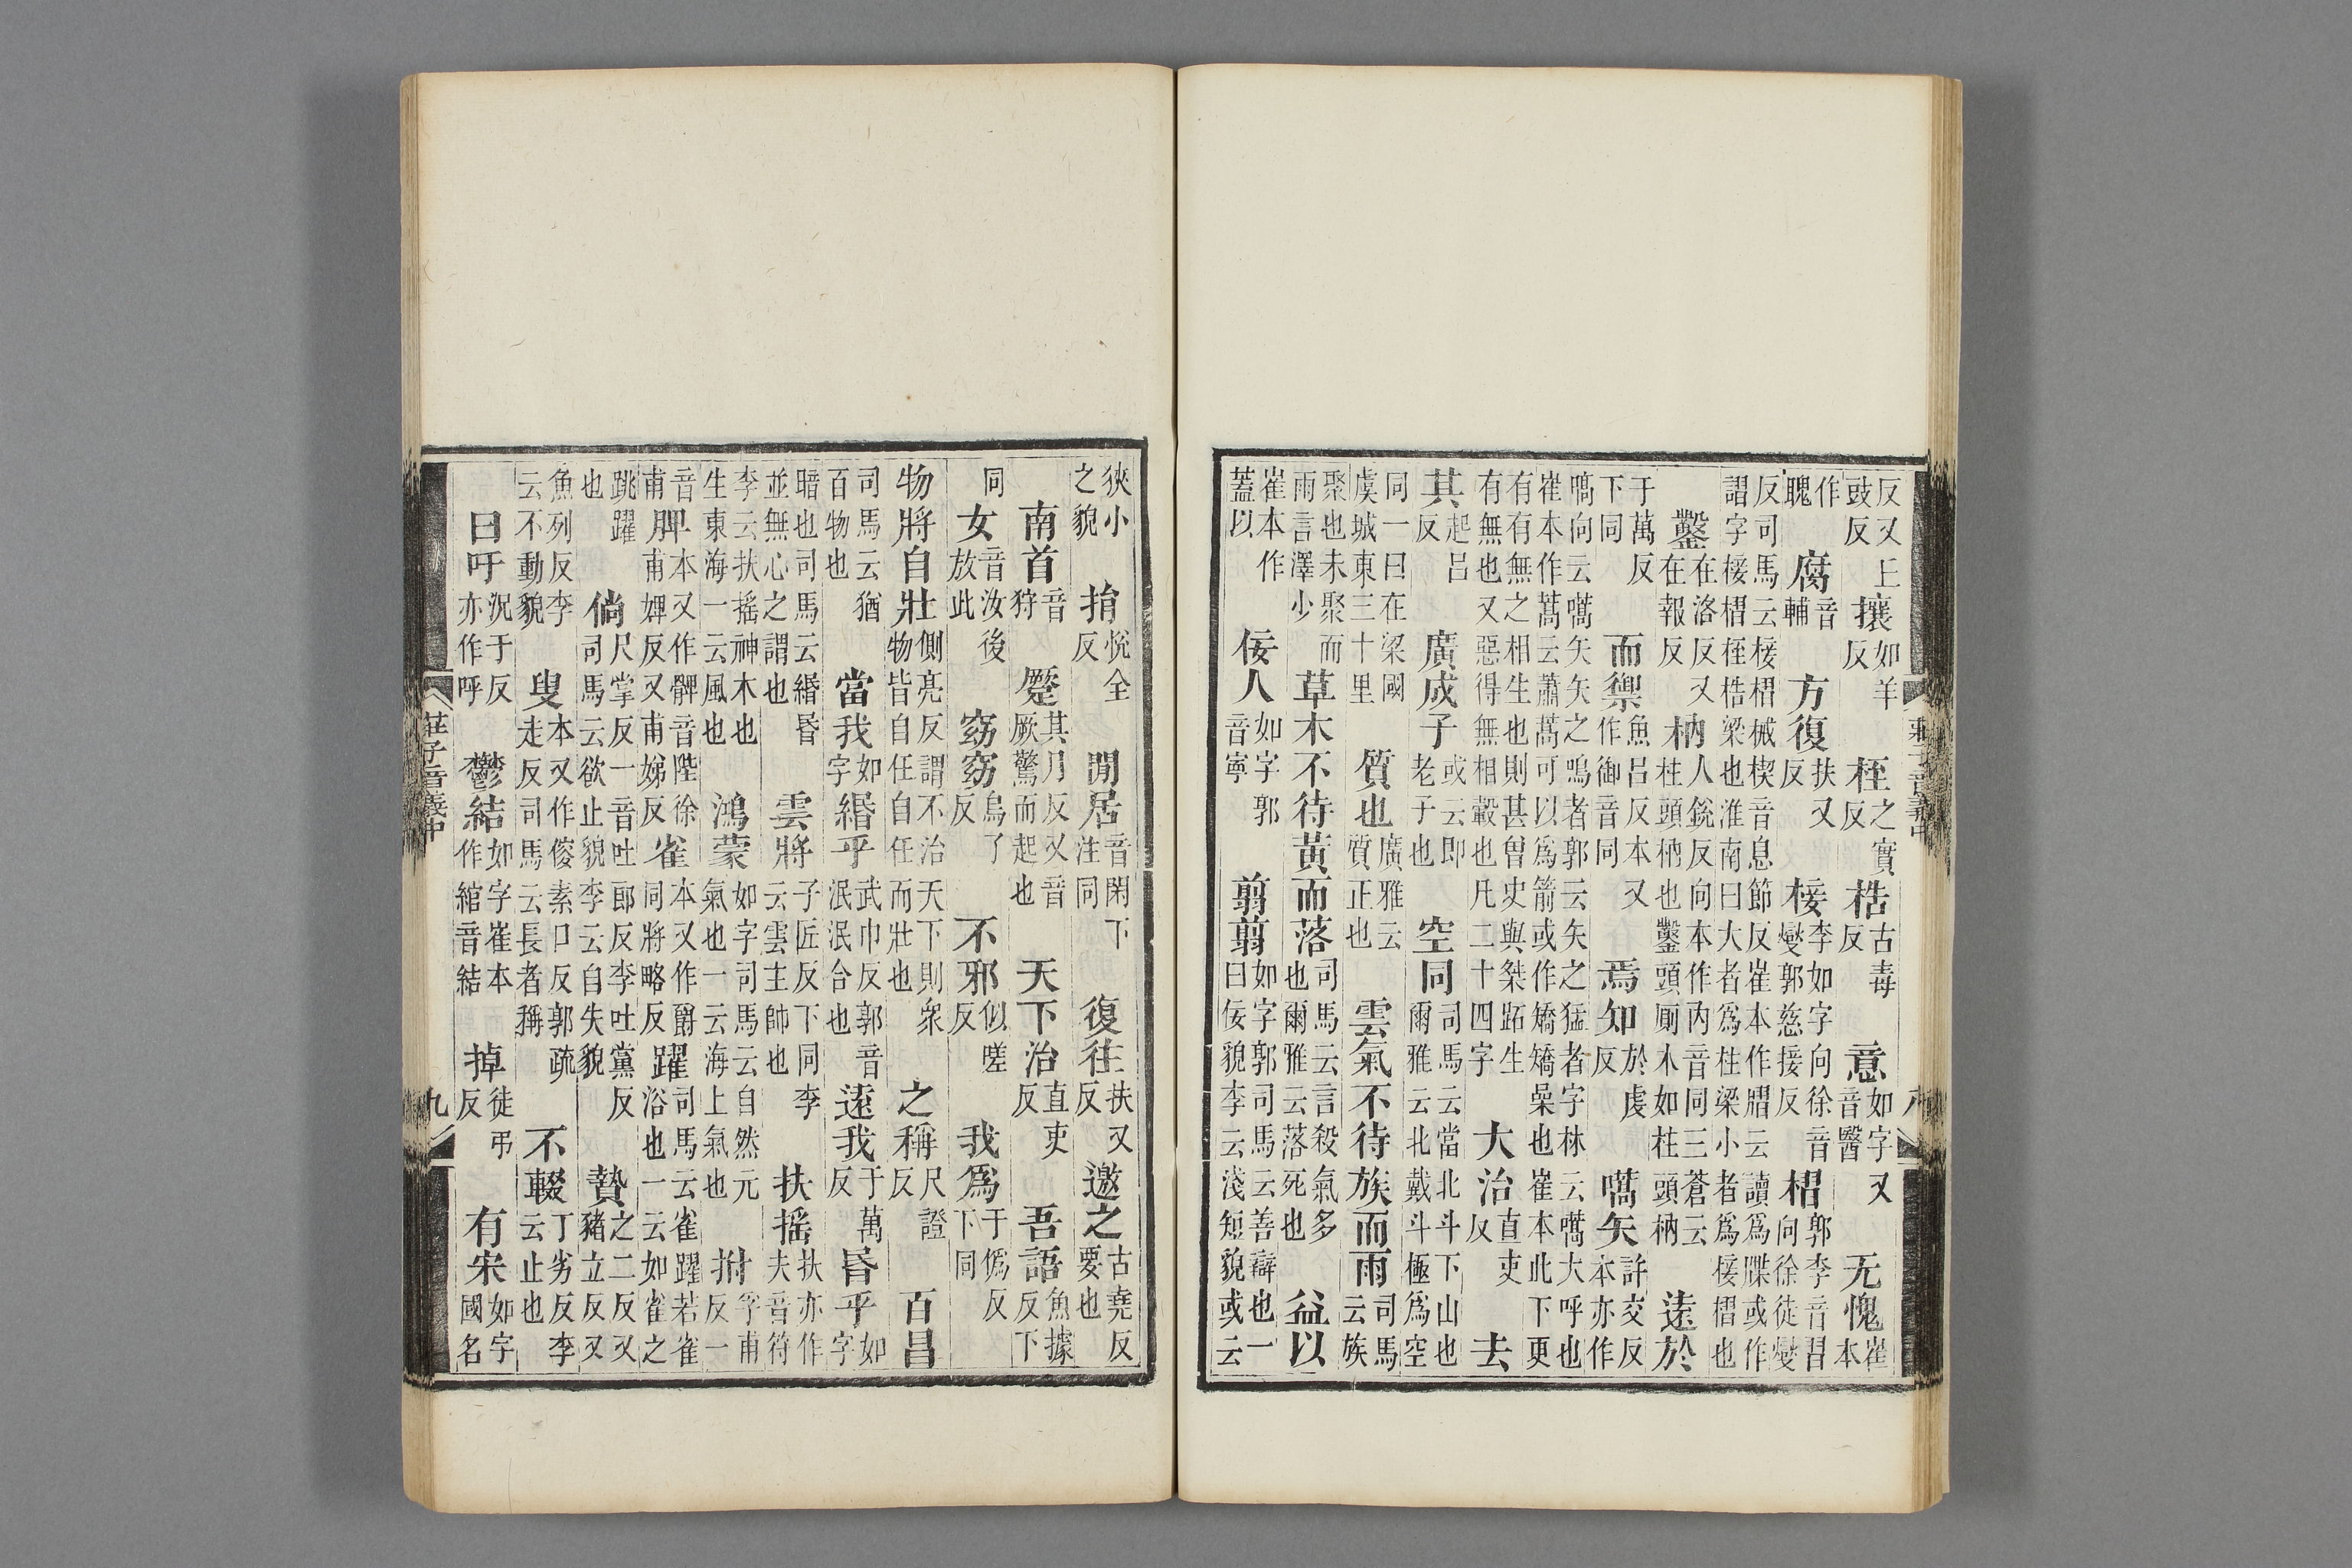 反又上豉反攘如羊反桎之實反梏古毒反意如字又音醫无愧崔本
作聭腐音輔方復扶又反椄李如字向徐音燮郭慈接反槢郭李音習向徐徒燮
反司馬云椄槢械楔音息節反崔本作云讀爲牒或作謂字椄槢桎梏梁也淮南曰大者爲柱梁小者爲椄槢也
鑿在洛反又在報反枘人銳反向本作內音同三蒼云柱頭枘也鑿頭厠木如柱頭枘遠於
于萬反下同而禦魚呂反本又作御音同焉知於虔反嚆矢許交反本亦作
嗃向云嚆矢矢之鳴者郭云矢之猛者字林云嚆大呼也崔本作蒿云蕭蒿可以爲箭或作矯矯喿也崔本此下更
有有無之相生也則甚曾史與桀跖生有無也又惡得無相轂也凡二十四字大治直吏反去
其起呂反廣成子或云即老子也空同司馬云當北斗下山也爾雅云北戴斗極爲空
同一曰在梁國虞城東三十里質也廣雅云質正也雲氣不待族而雨司馬云族
聚也未聚而雨言澤少草木不待黃而落司馬云言殺氣多也爾雅云落死也益以
崔本作蓋以佞人如字郭音寧翦翦如字郭司馬云善辯也一曰佞貌李云淺短貌或云
狹小之貌捐悅全反閒居音閑下注同復往扶又反邀之古堯反要也
南首音狩蹷其月反又音厥驚而起也天下治直吏反吾語魚據反下
同女音汝後放此窈窈烏了反不邪似嗟反我爲于僞反下同
物將自壯側亮反謂不治天下則衆物皆自任自任而壯也之稱尺證反百昌
司馬云猶百物也當我如字緡乎武巾反郭音泯泯合也遠我于萬反昬乎如字
暗也司馬云緡昬並無心之謂也雲將子匠反下同李云雲主帥也扶搖扶亦作夫音符
李云扶搖神木也生東海一云風也鴻蒙如字司馬云自然元氣也一云海上氣也拊孚甫反一
音甫脾本又作髀音陛徐甫婢反又甫娣反雀本又作爵同將略反躍司馬云雀躍若雀浴也一云如雀之
跳躍也倘尺掌反一音吐郎反李吐黨反司馬云欲止貌李云自失貌贄之二反又豬立反又
魚列反李云不動貌叟本又作傁素口反郭疏走反司馬云長者稱不輟丁劣反李云止也
曰吁況于反亦作呼鬱結如字崔本作綰音結掉徒弔反有宋如字國名
莊子音義中
九